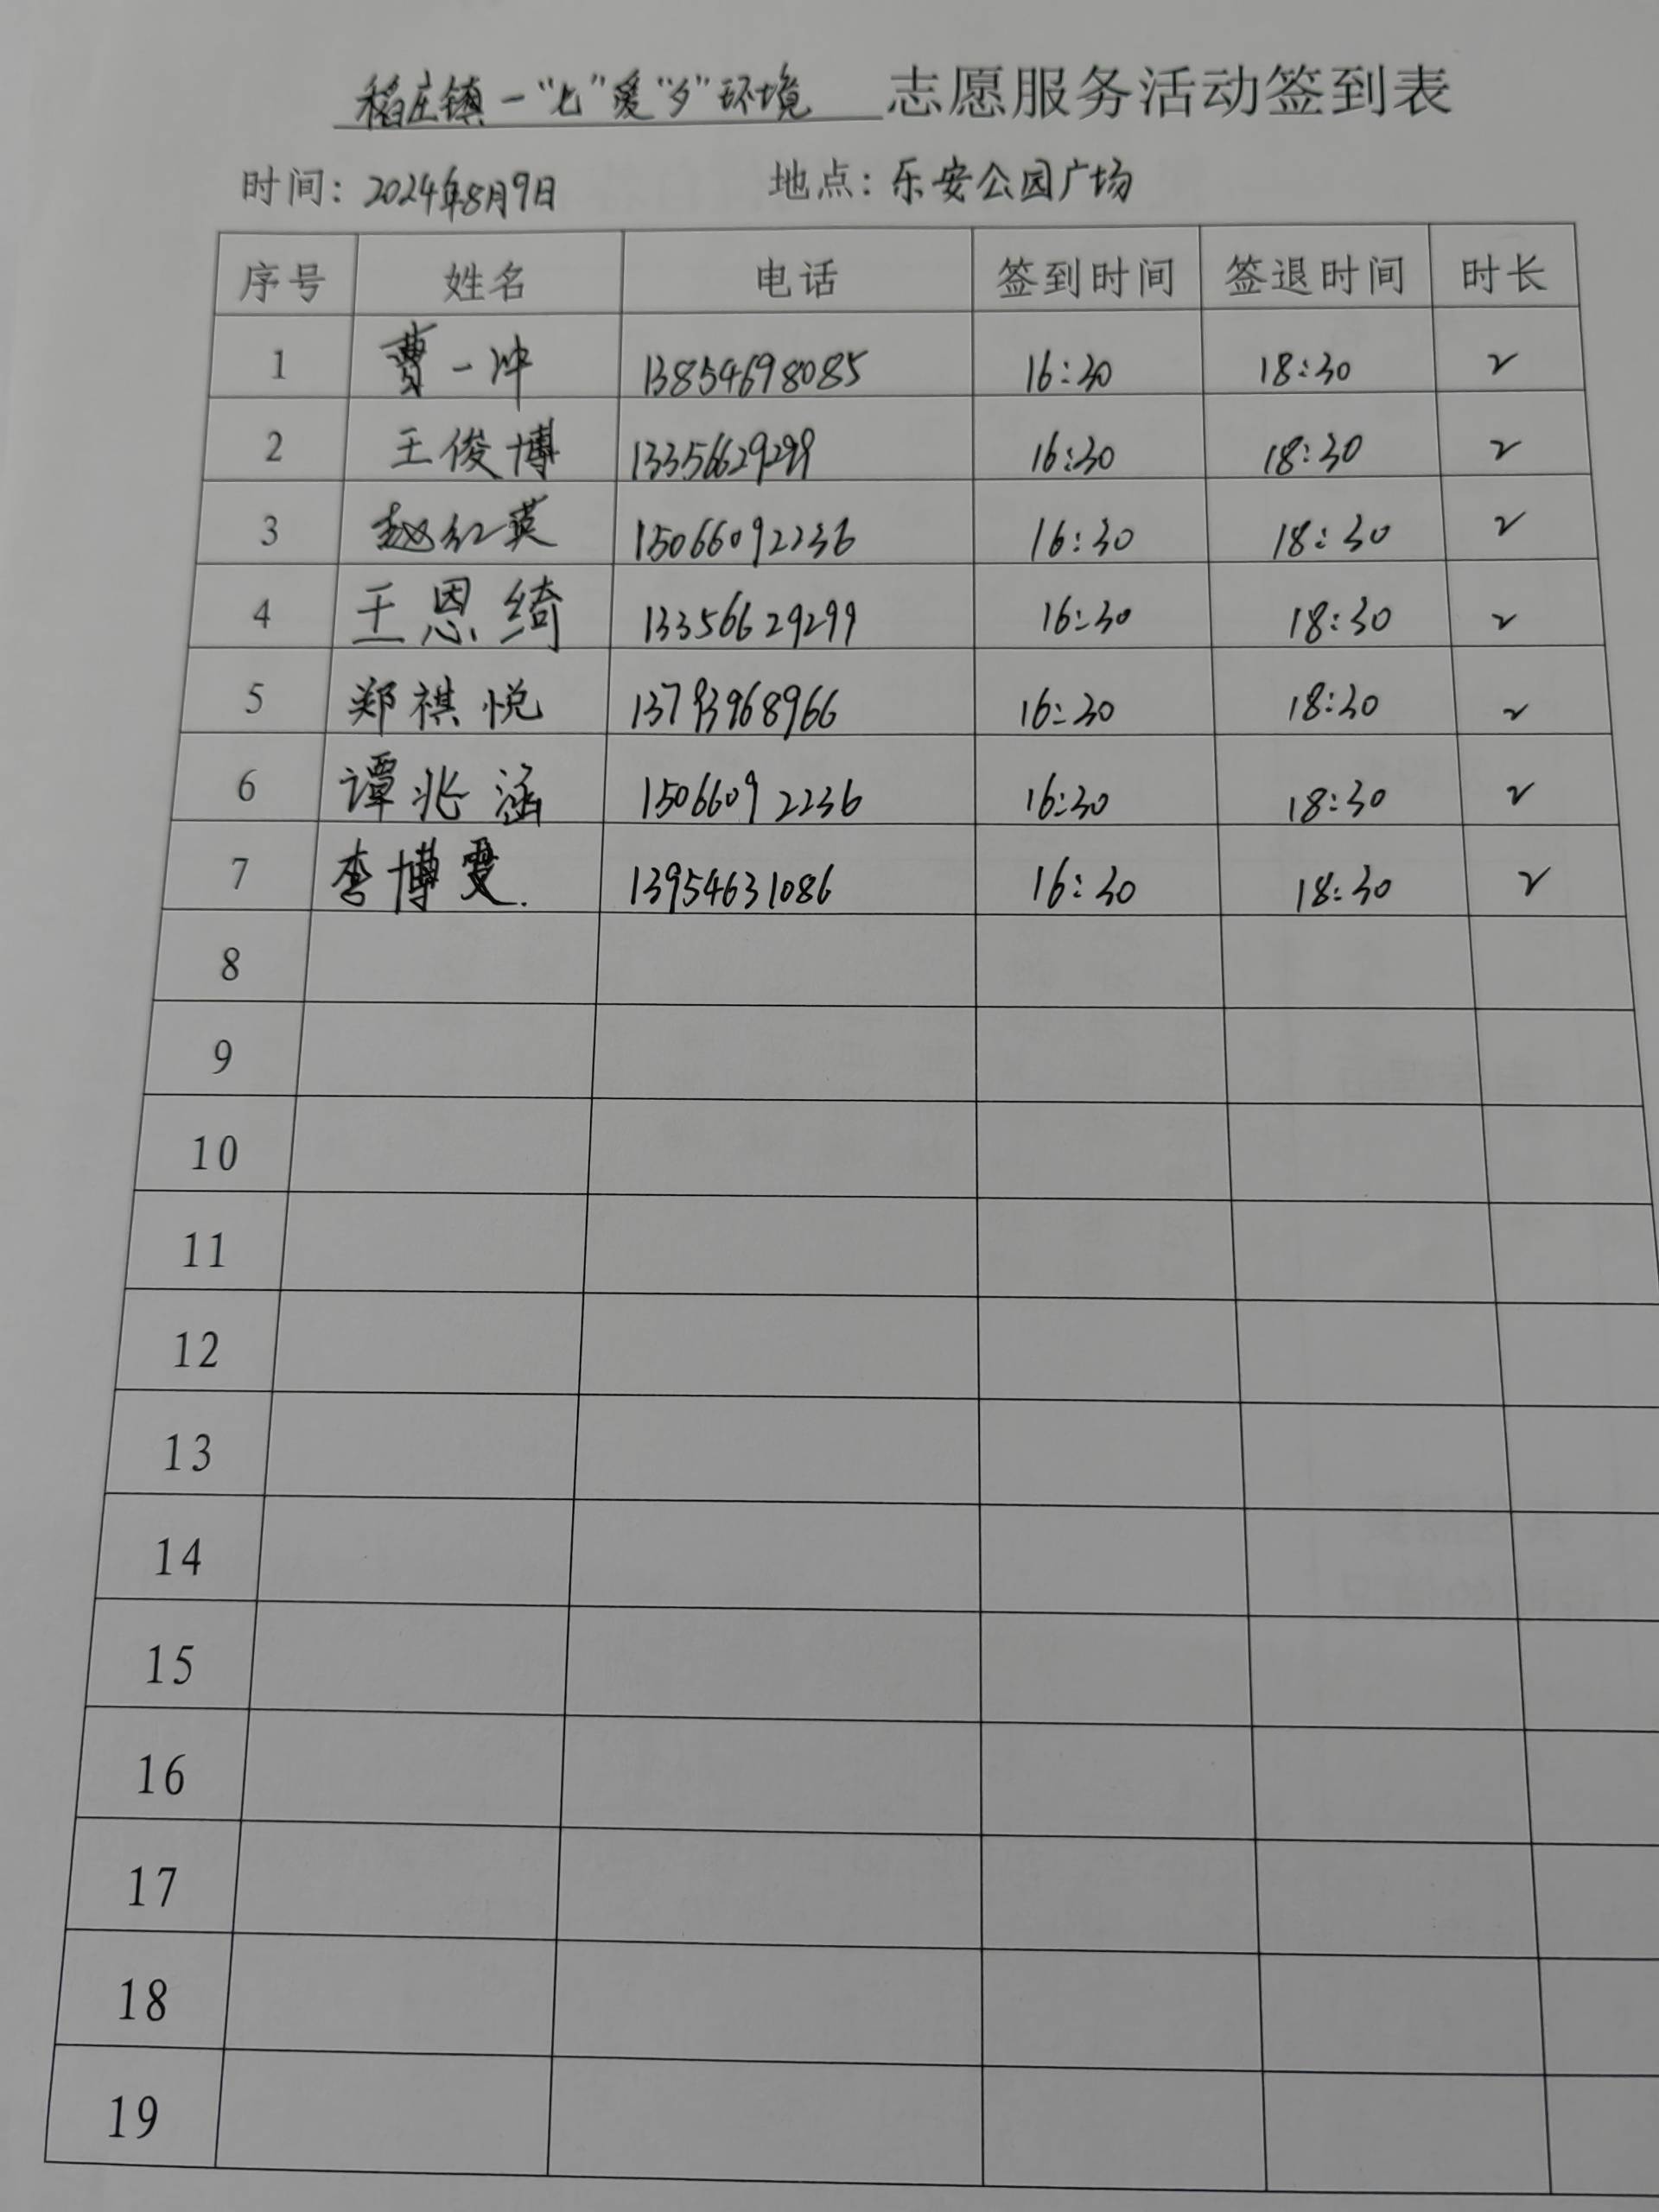 稻庄镇一“七”爱“夕”环境 志愿服务活动签到表
时间：2024年8月9日 地点：乐安公园广场
序号 姓名 电话 签到时间 签退时间 时长
1 曹一冲 13854698085 16:30 18:30 2
2 王俊博 13356629299 16:30 18:30 2
3 赵红英 15066092236 16:30 18:30 2
4 王恩绮 13356629299 16:30 18:30 2
5 郑祺悦 13793968966 16:30 18:30 2
6 谭兆涵 15066092236 16:30 18:30 2
7 李博雯. 13954631086 16:30 18:30 2
8
9
10
11
12
13
14
15
16
17
18
19